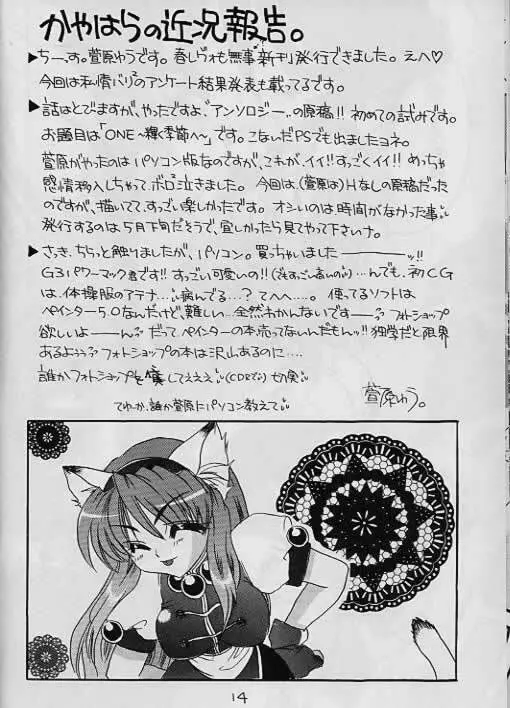 かやはらの近況報告。
▶ちーっす。萱原ゆうです。春しぉも無事新刊発行できました。えへ♡
今回は私情バリ2のアンケート結果発表も載ってるです。
▶話はとびますが、やったですよ、"アンソロジー"の原稿!! 初めての試みです。
お題目は「ONE ~輝く季節へ~」です。こないだPSでも出ましたヨネ。
萱原がやったのはパソコン版なのですが、これが、イイ!!すっごくイイ!! めっちゃ
感情移入しちゃって、ボロ泣きました。今回は、(萱原は)Hなしの原稿だった
のですが、描いてて、すっごい楽しかったです。オシいのは時間がなかった事。
発行するのは5月下旬だそうで、宜しかったら見てやって下さいナ。
▶さっき、ちらっと触りましたが、パソコン。買っちゃいました――ッ!!
G3パワーマック君です!! すっごい可愛いの!!(でもすっごい高いの)…んでも、初CG
は、体操服のアテナ…病んでる…?てへへ…。使ってるソフトは
ペインター5.0なんだけど、難しい…全然わかんないですーっ フォトショップ
欲しいよーーんっ だって、ペインターの本、売ってないんだもんッ!!独学だと限界
あるようっっフォトショップの本は沢山あるのに….
誰かフォトショップを してえええ(CDRでい)切実
てゆーか、誰か萱原にパソコン教えて
萱原ゆう。
14